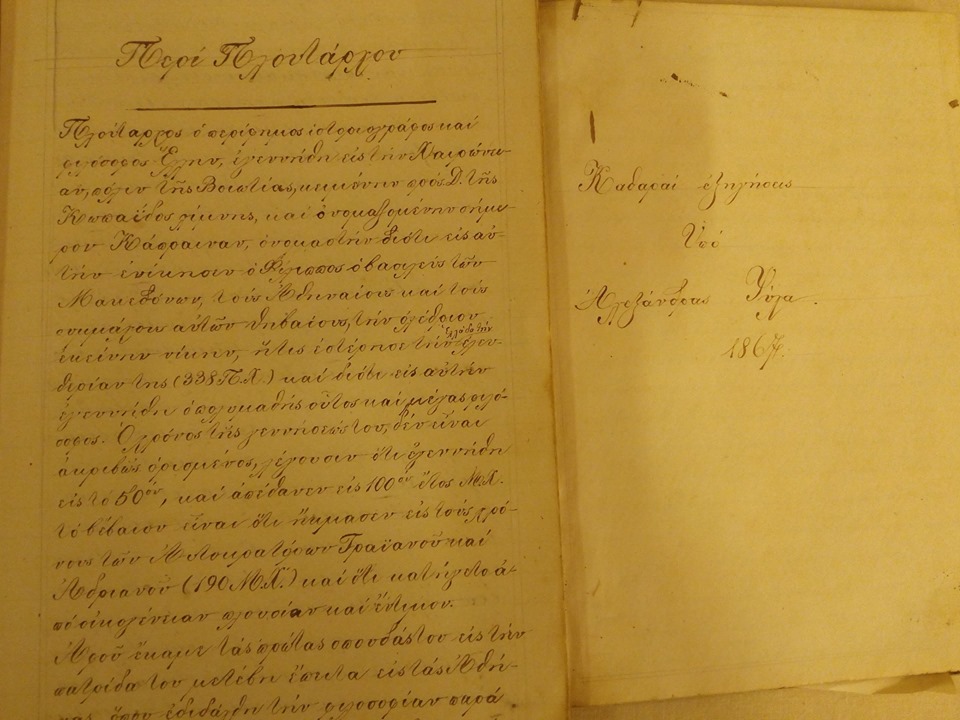 Περί Πλουτάρχου
Πλούταρχος ὁ περίφημος ἱστοριογράφος καί
φιλόσοφος Ἕλην, ἐγεννήθη εἰς τήν Χαιρώνει-
αν, πόλιν τῆς Βοιωτίας, κειμένην πρός Δ. τῆς
Κωπαΐδος λίμνης, καί ὀνομαζομένην σήμε-
ρον Κάπραιναν, ὀνομαστήν διότι εἰς αὐ-
τήν ἐνίκησεν ὁ Φίλιππος ὁ βασιλεύς τῶν
Μακεδόνων, τούς Ἀθηναίους καί τούς
συμμάχους αὐτῶν Θηβαίους, τήν ὀλέθριον
ἐκείνην νίκην, ἥτις ἐστέρησε τήν Ἑλλάδα τήν ἐλευ-
θερίαν της (338 Π.Χ.) καί διότι εἰς αὐτήν
ἐγεννήθη ὁ πολυμαθής οὗτος καί μέγας φιλό-
σοφος. Ὁ χρόνος τῆς γεννήσεώς του, δέν εἶναι
ἀκριβῶς ὁρισμένος, λέγουσιν ὅτι ἐγεννήθη
εἰς τό 50όν, καί ἀπέθανεν εἰς 100όν ἔτος Μ.Χ.
τό βέβαιον εἶναι ὅτι ἤκμασεν εἰς τούς χρό-
νους τῶν Αὐτοκρατόρων Τραϊανοῦ καί
Ἀδριανοῦ (190 Μ.Χ.) καί ὅτι κατήγετο ἀ-
πό οἰκογένειαν πλουσίαν καί ἔντιμον.
Ἀφοῦ ἔκαμε τάς πρώτας σπουδάς του εἰς τήν
πατρίδα του μετέβη ἔπειτα εἰς τάς Ἀθή-
νας, ὅπου ἐδιδάχθη τήν φιλοσοφίαν παρά
Καθαραί ἐξηγήσεις
Ὑπό
Ἀλεξάνδρας Ψύλα.
1867.